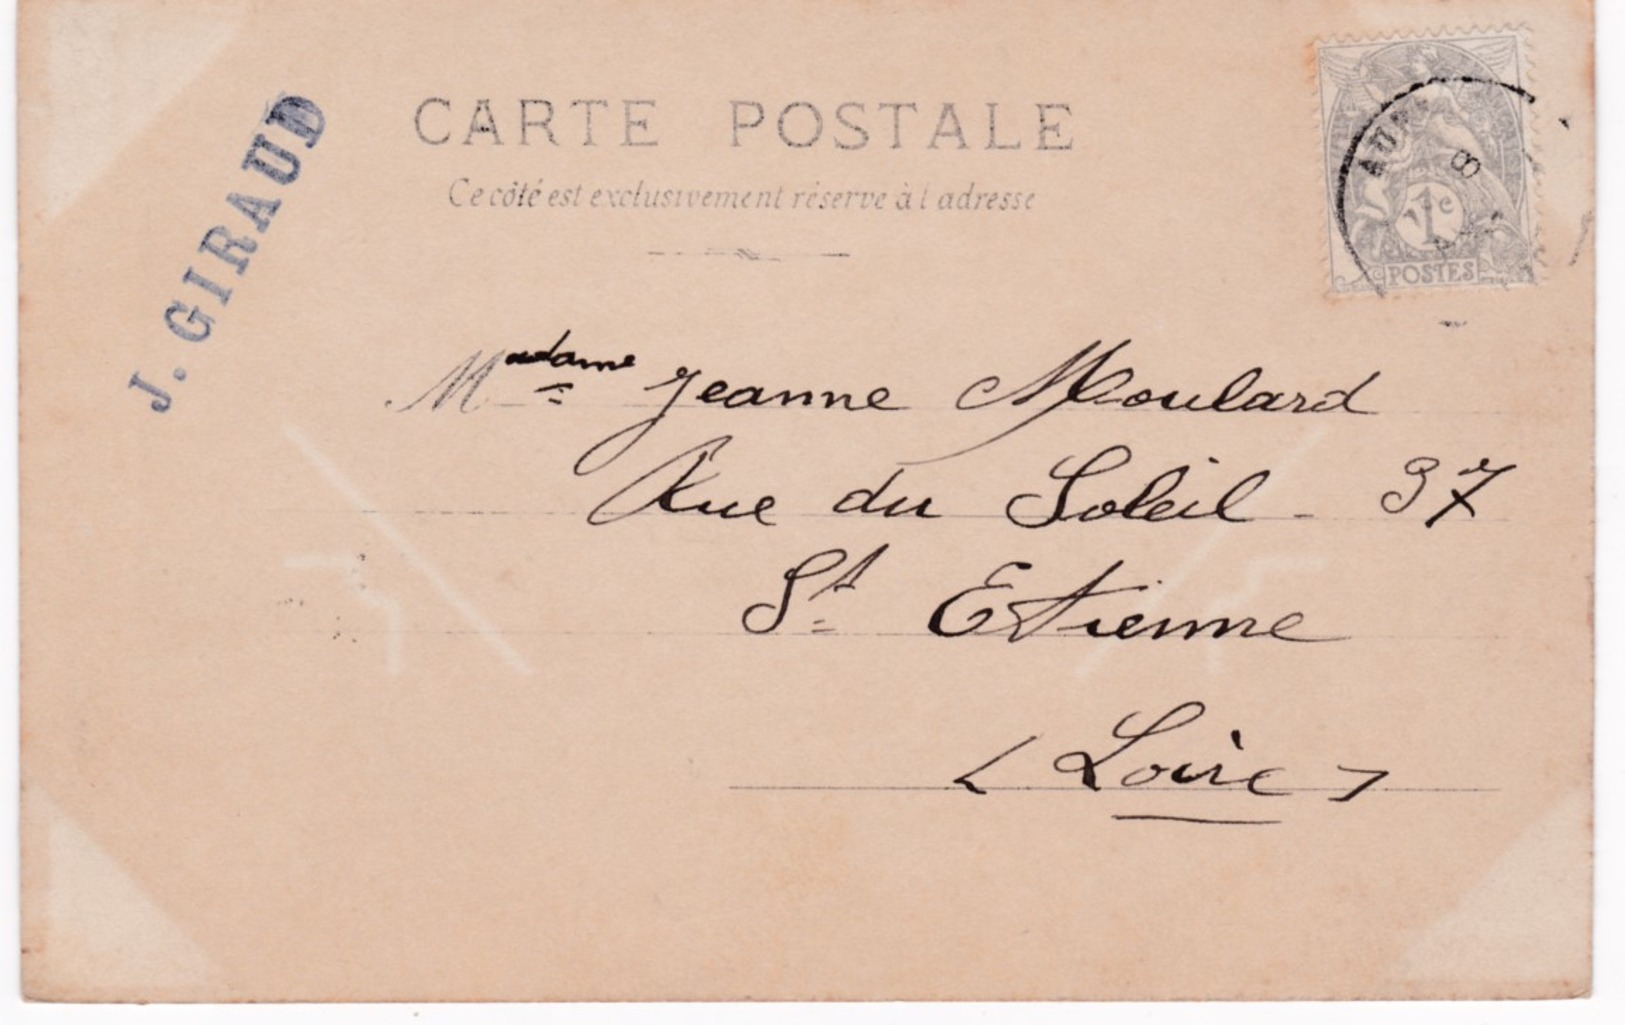 CARTE POSTALE
Ce côté est exclusivement réservé à l'adresse
J. GIRAUD
1c
POSTES
8
Madame Jeanne Moulard
Rue du Soleil - 37
St Etienne
(Loire)